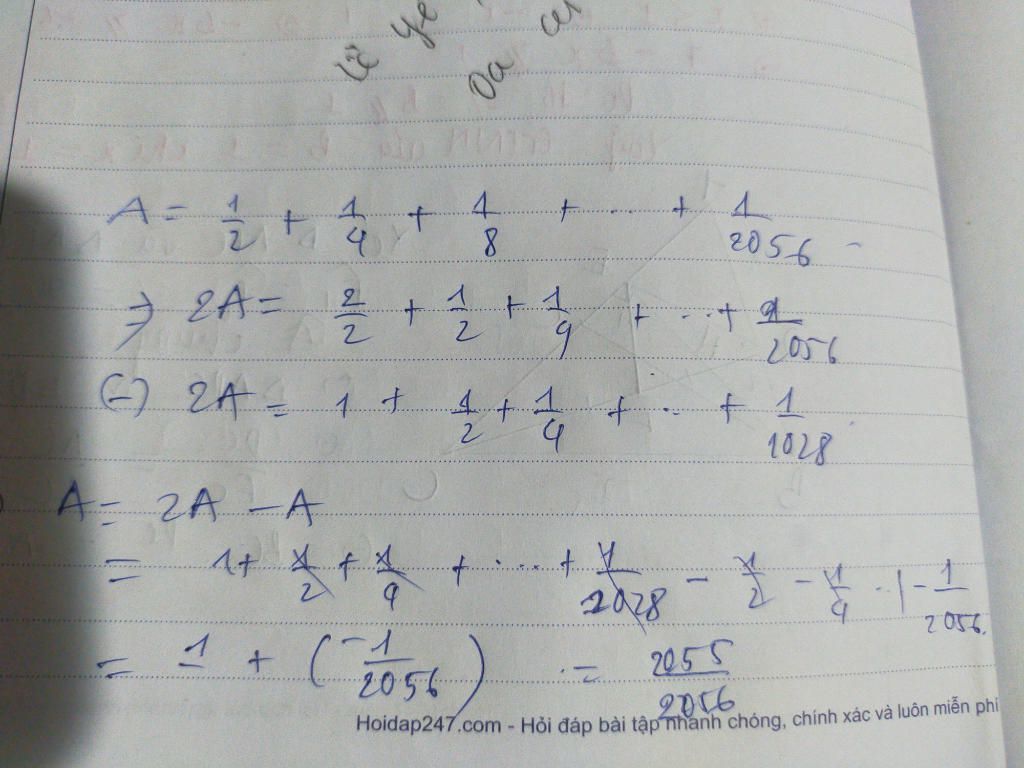 A = 1/2 + 1/4 + 1/8 + ... + 1/2056
=> 2A = 2/2 + 1/2 + 1/4 + ... + 2/2056
(=) 2A = 1 + 1/2 + 1/4 + ... + 1/1028
A = 2A - A
= 1 + 1/2 + 1/4 + ... + 1/1028 - 1/2 - 1/4 ... - 1/2056
= 1 + (-1/2056) = 2055/2056
Hoidap247.com - Hỏi đáp bài tập nhanh chóng, chính xác và luôn miễn phí